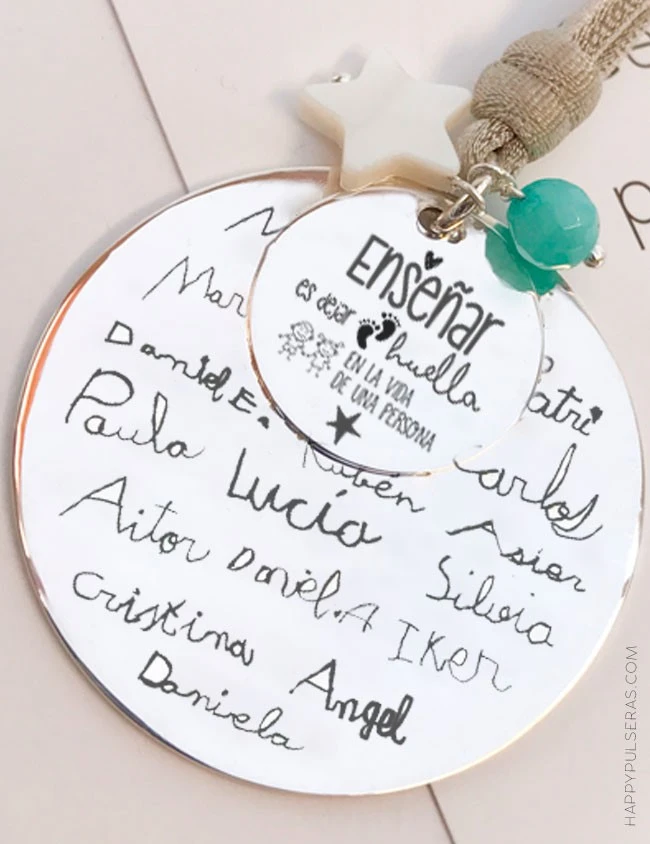 Enseñar
es dejar huella
EN LA VIDA
DE UNA PERSONA
Mar
Daniel E.
Paula Lucía Rubén Carlos
Aitor Daniel.A Silvia Asier
Cristina Angel IKer
Daniela
HAPPYPULSERAS.COM